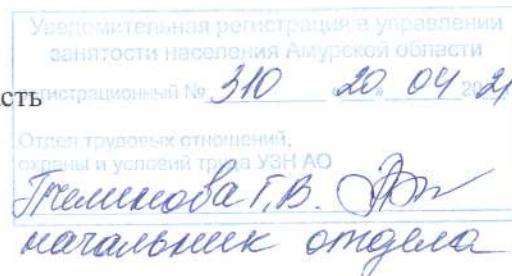 Уведомительная регистрация в управлении
занятости населения Амурской области
сть регистрационный № 310 «20» 04 2021
Отдел трудовых отношений,
охраны и условий труда УЗН АО
Т.В.
начальник отдела